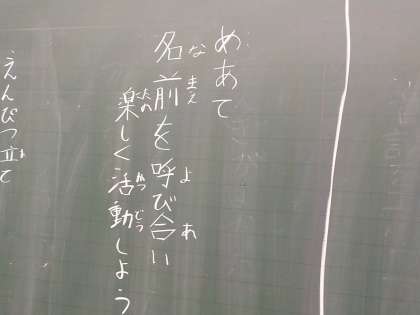 めあて
名前を呼び合い
楽しく活動しよう
えんぴつ立て